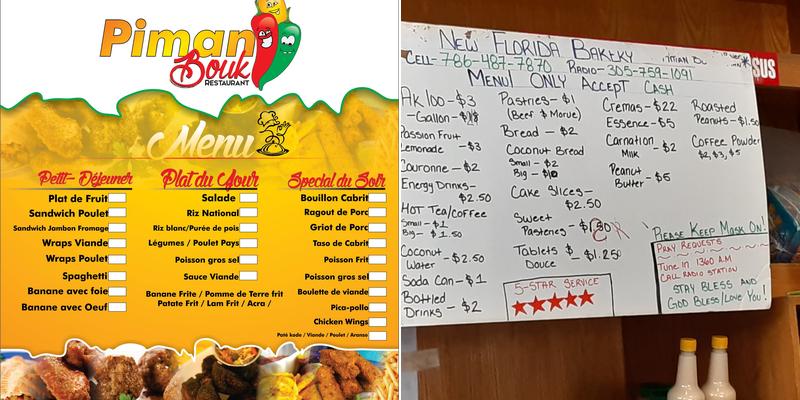 Piman
Bouk
RESTAURANT
Menu
Petit-Déjeuner
Plat de Fruit
Sandwich Poulet
Sandwich Jambon Fromage
Wraps Viande
Wraps Poulet
Spaghetti
Banane avec foie
Banane avec Oeuf
Plat du Jour
Salade
Riz National
Riz blanc/Purée de pois
Légumes / Poulet Pays
Poisson gros sel
Sauce Viande
Banane Frite / Pomme de Terre frit
Patate Frit / Lam Frit / Acra /
Special du Soir
Bouillon Cabrit
Ragout de Porc
Griot de Porc
Taso de Cabrit
Poisson Frit
Poisson gros sel
Boulette de viande
Pica-pollo
Chicken Wings
Paté kode / Viande / Poulet / Aranso
NEW FLORIDA BAKERY
CELL-786-487-7870 RADIO-305-759-1091
MENU! ONLY ACCEPT CASH
AK100-$3
-Gallon-
Passion Fruit
Lemonade -$3
Couronne -$2
Energy Drinks-
$2.50
HOT Tea/Coffee
Small-$1
Big-$1.50
Coconut
Water -$2.50
Soda Can-$1
Bottled
Drinks -$2
Pastries-$1
(Beef & Morue)
Bread - $2
Coconut Bread
Small-$2
Big -
Cake Slices-
$2.50
Sweet
Pasteries-
Tablets
Douce -$1.25
5-STAR SERVICE
Cremas-$22
Essence-$5
Carnation
Milk -$2
Peanut
Butter -$5
Roasted
Peanuts-$1.50
Coffee Powder
$2, $3, $5
PLEASE KEEP MASK ON!
PRAY REQUESTS
Tune in 1360 A.M
CALL RADIO STATION
STAY BLESS AND
GOD BLESS/LOVE YOU!
SUS